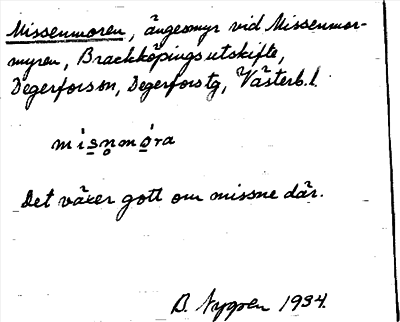 Missenmoren, ängesmyr vid Missenmor-
myren, Brackköpings utskifte,
Degerfors sn, Degerfors tg, Västerb. l.
misn̥mo̱ra
Det växer gott om missne där.
B. Nygren 1934.